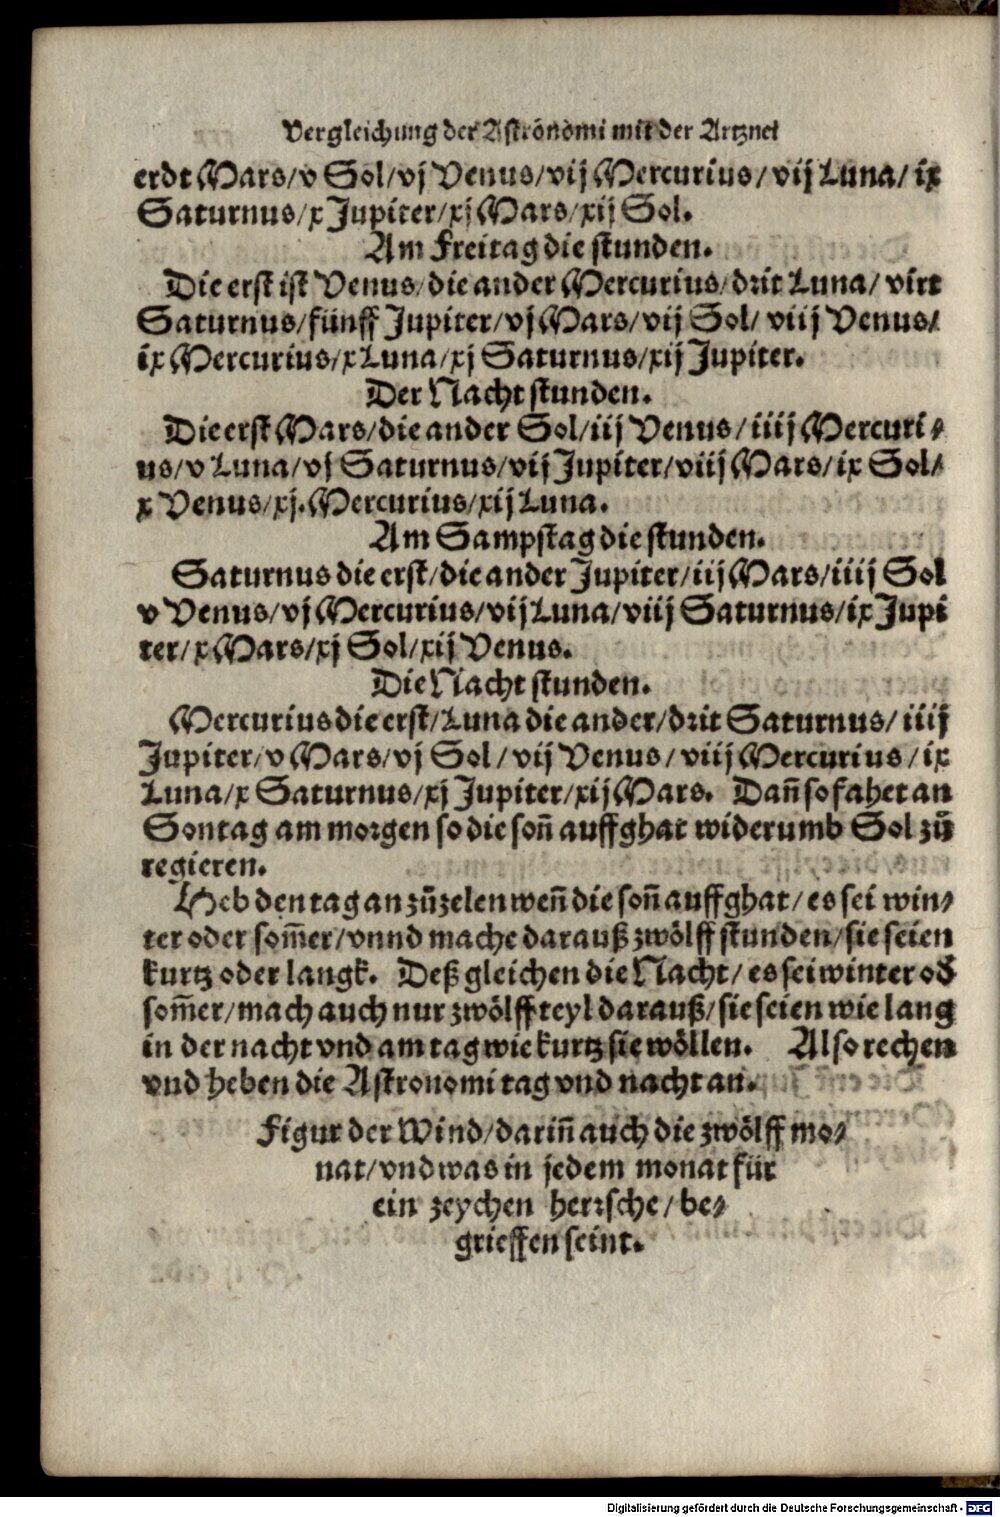 Vergleichung der Astronomi mit der Artznei
erdt Mars/v Sol/vj Venus/vij Mercurius/vij Luna/ix
Saturnus/x Jupiter/xj Mars/xij Sol.
Am Freitag die stunden.
Die erst ist Venus/die ander Mercurius/drit Luna/virt
Saturnus/fünff Jupiter/vj Mars/vij Sol/viij Venus/
ix Mercurius/x Luna/xj Saturnus/xij Jupiter.
Der Nacht stunden.
Die erst Mars/die ander Sol/iij Venus/iiij Mercuri⸗
us/v Luna/vj Saturnus/vij Jupiter/viij Mars/ix Sol/
x Venus/xj.Mercurius/xij Luna.
Am Sampstag die stunden.
Saturnus die erst/die ander Jupiter/iij Mars/iiij Sol
v Venus/vj Mercurius/vij Luna/viij Saturnus/ix Jupi
ter/x Mars/xj Sol/xij Venus.
Die Nacht stunden.
Mercurius die erst/Luna die ander/drit Saturnus/iiij
Jupiter/v Mars/vj Sol/vij Venus/viij Mercurius/ix
Luna/x Saturnus/xj Jupiter/xij Mars. Dañ so fahet an
Sontag am morgen so die soñ auffghat widerumb Sol zů
regieren.
Heb den tag an zůzelen weñ die soñ auffghat/es sei win⸗
ter oder som̃er/vnnd mache darauß zwölff stunden/sie seien
kurtz oder langk. Deß gleichen die Nacht/es sei winter oď
som̃er/mach auch nur zwölff teyl darauß/sie seien wie lang
in der nacht vnd am tag wie kurtz sie wöllen. Also rechen
vnd heben die Astronomi tag vnd nacht an.
Figur der Wind/dariñ auch die zwölff mo⸗
nat/vnd was in jedem monat für
ein zeychen herrsche/be⸗
grieffen seint.
Digitalisierung gefördert durch die Deutsche Forschungsgemeinschaft - DFG